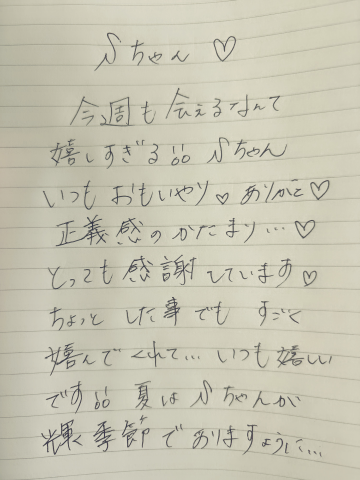 Sちゃん ♡
今週も会えるなんて
嬉しすぎる!! Sちゃん
いつもおもいやり♡ありがと♡
正義感のかたまり…♡
とっても感謝しています♡
ちょっとした事でもすごく
嬉んでくれて…いつも嬉しい
です!! 夏はSちゃんが
輝く季節でありますように…